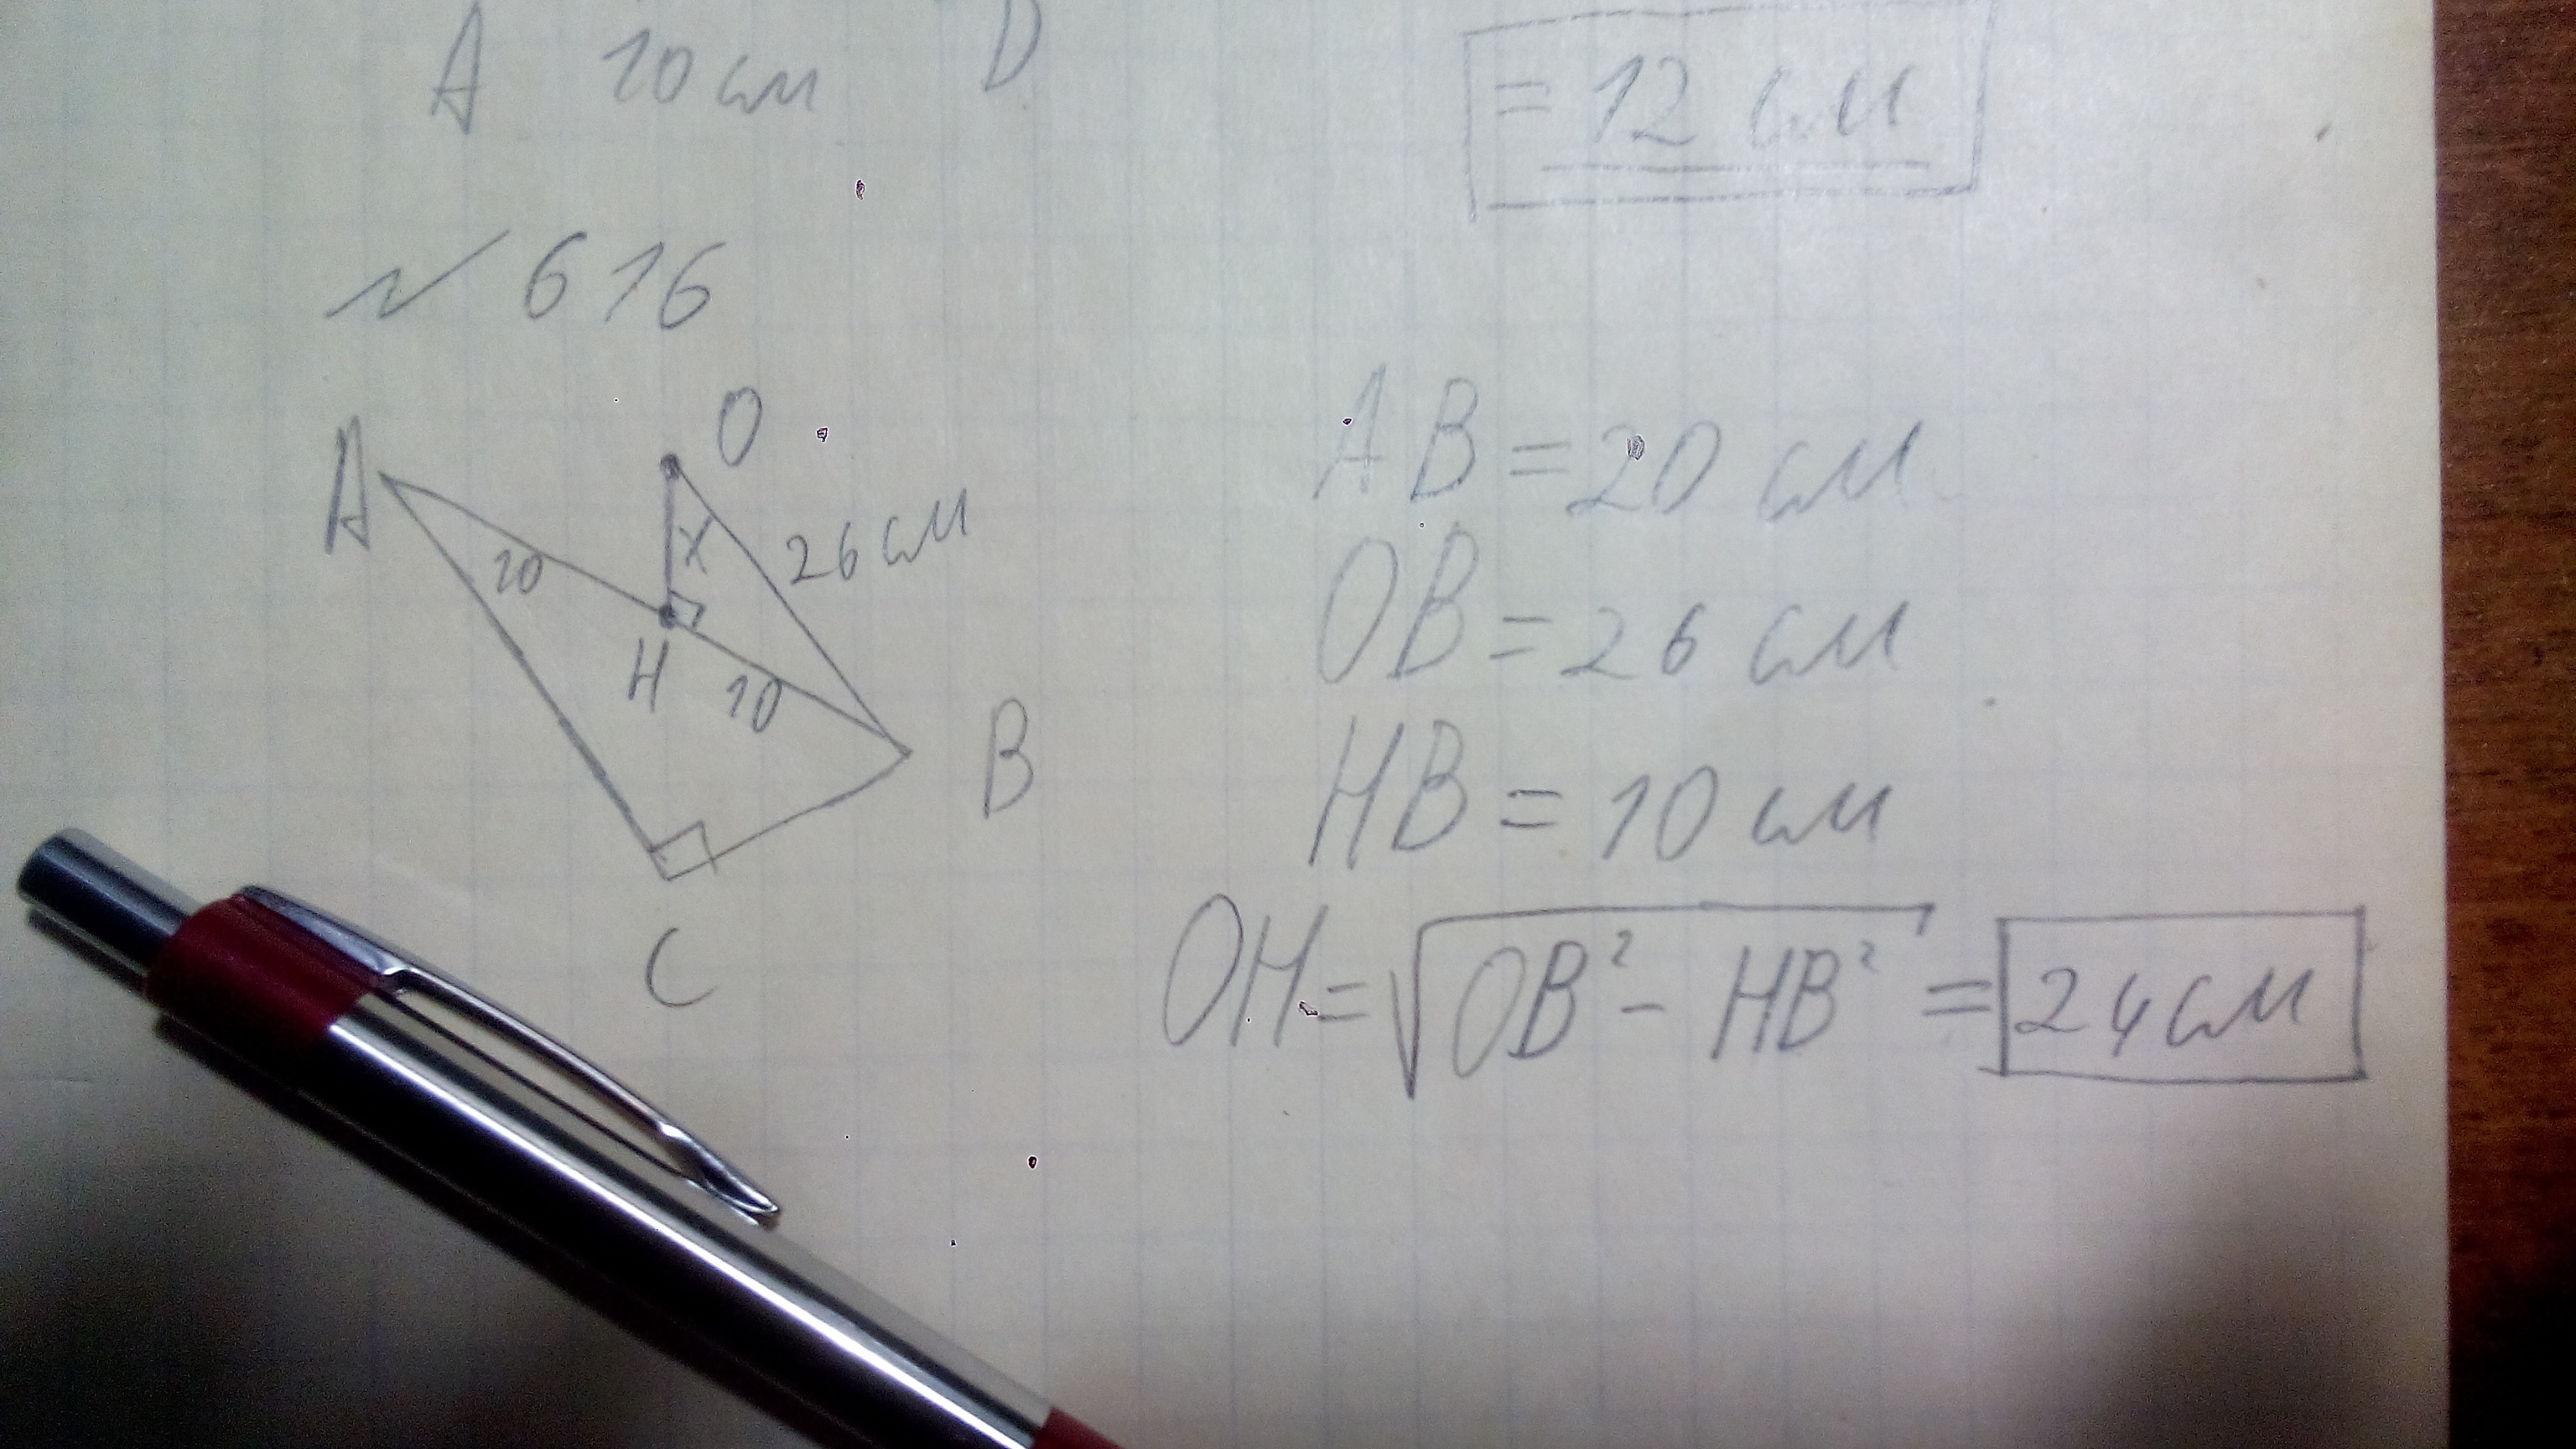 A 10 см D
= 12 см
№ 616
O
A
x
26 см
10
H
10
B
C
AB = 20 см
OB = 26 см
HB = 10 см
OH = √OB² - HB² = 24 см